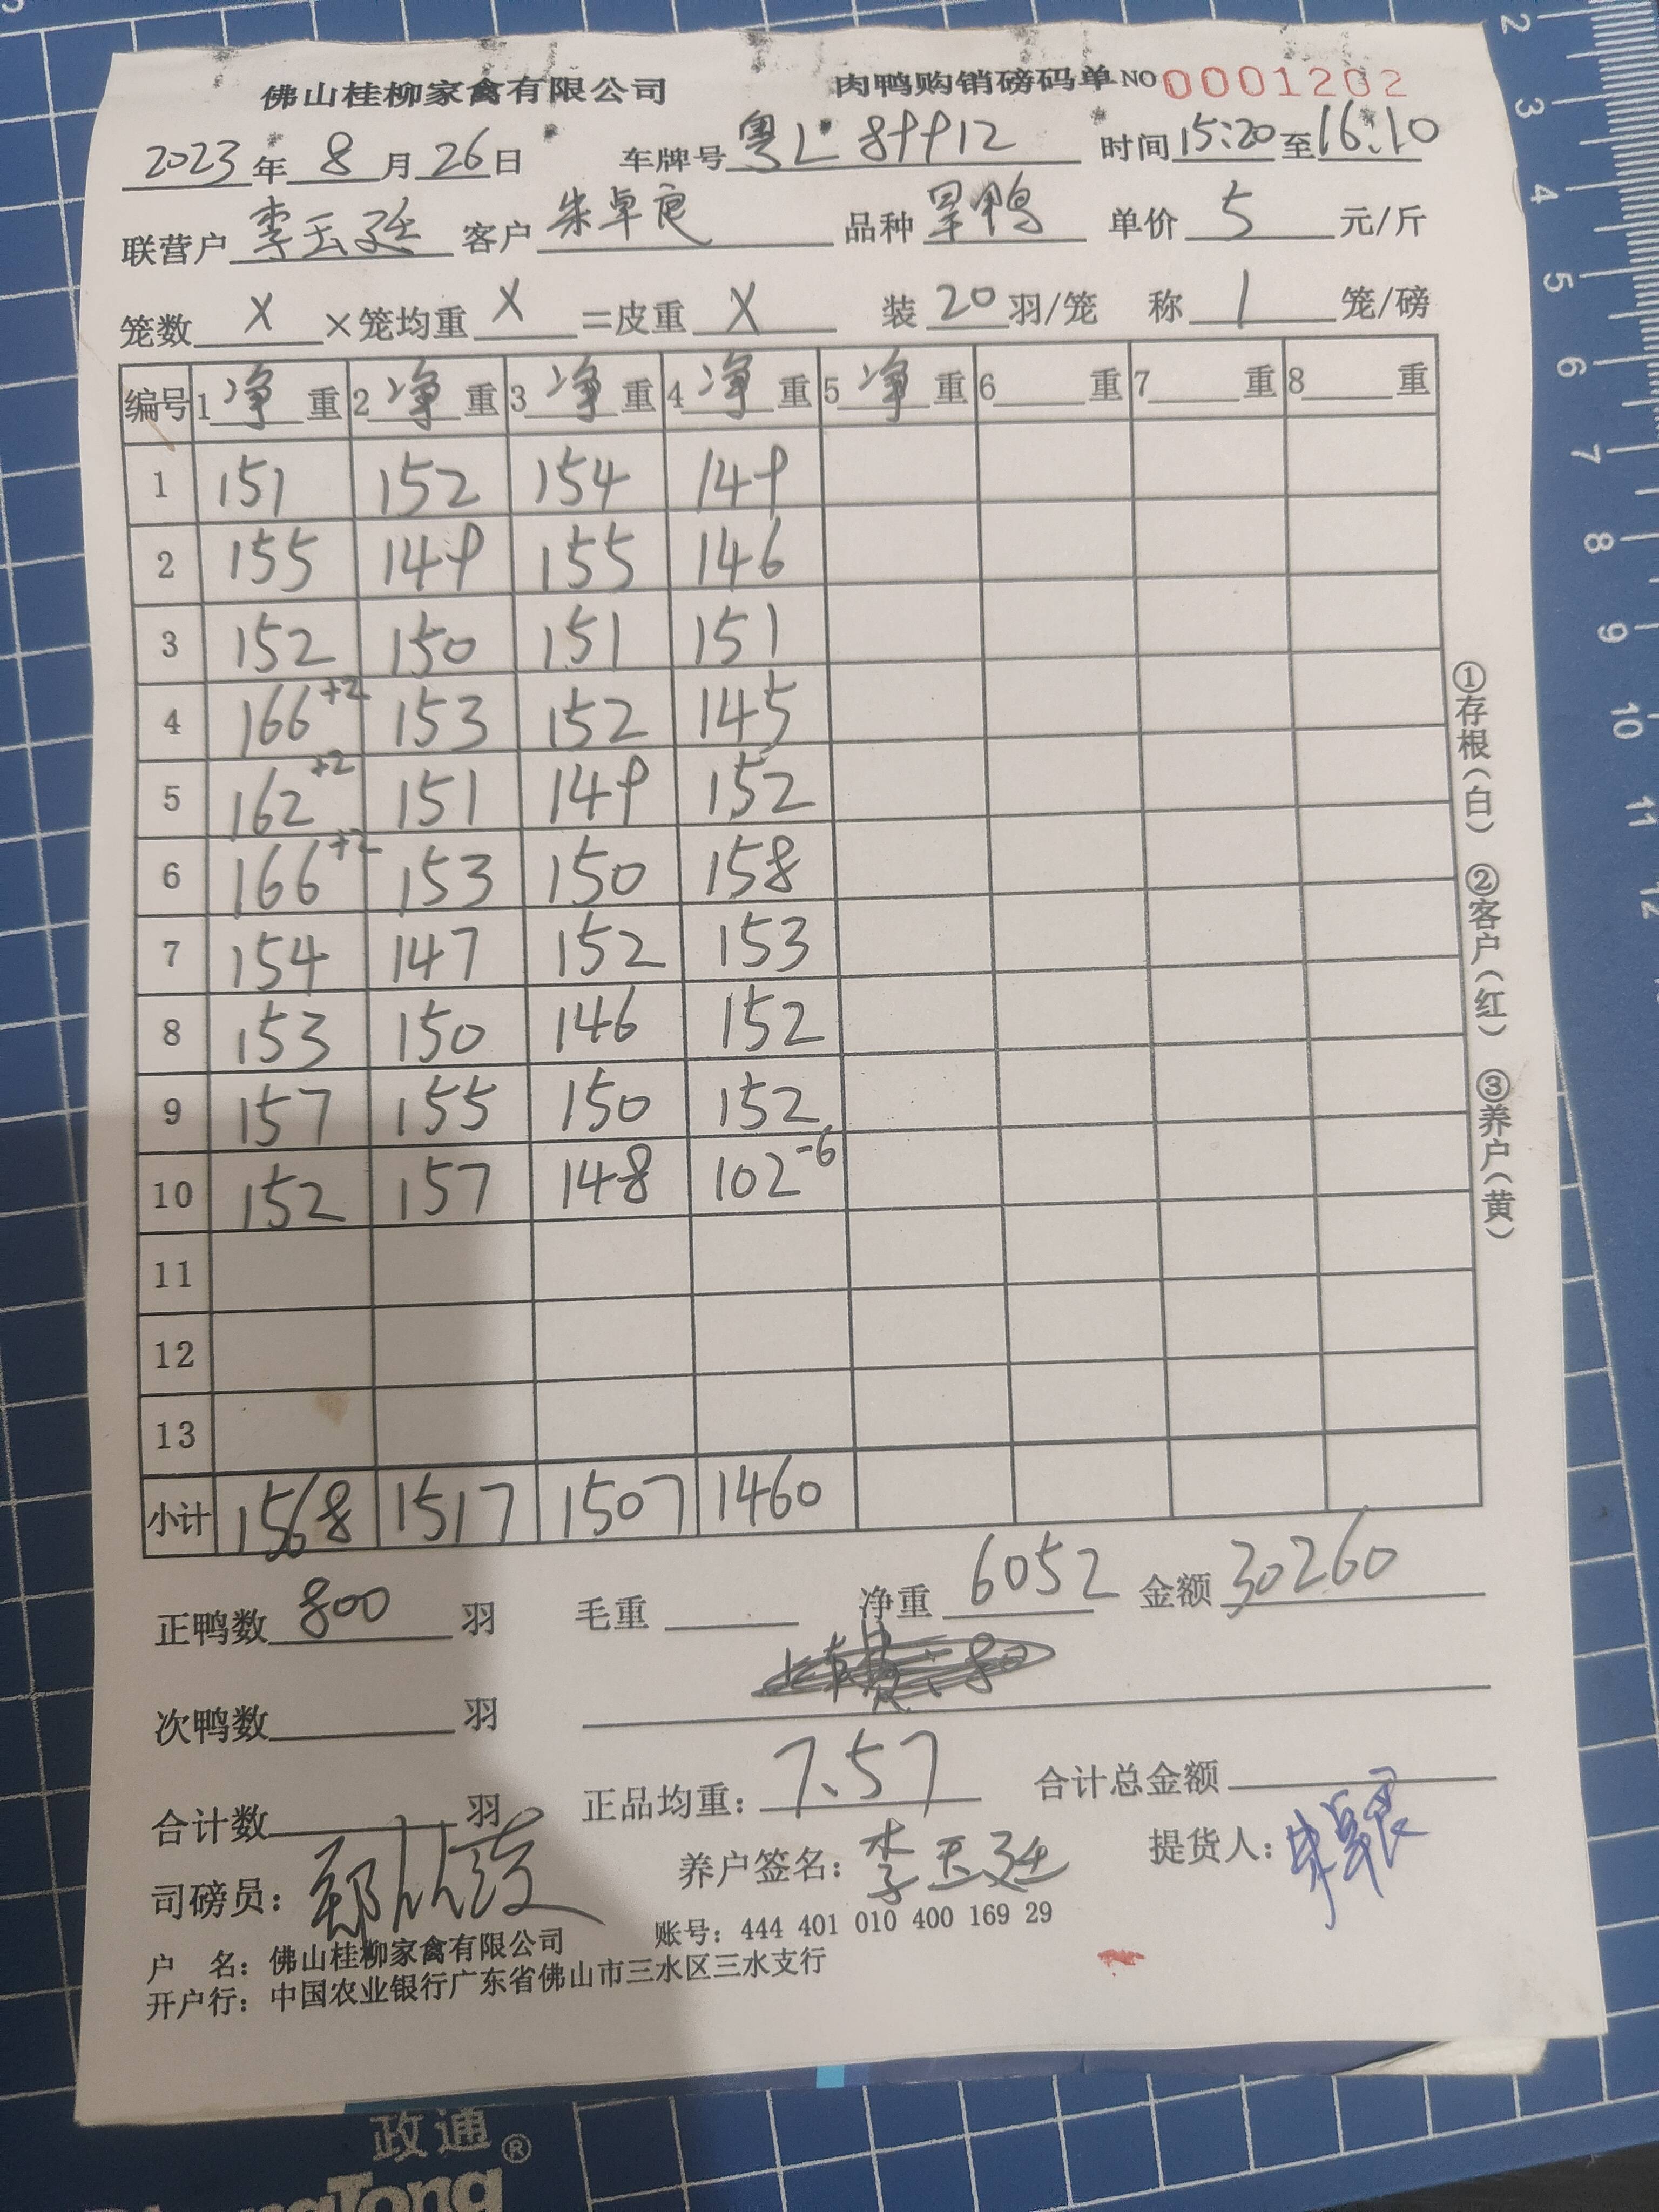 佛山桂柳家禽有限公司 肉鸭购销磅码单 NO 0001202
2023年 8月26日 车牌号 粤L 89912 时间15:20至16:10
联营户 李玉廷 客户 朱卓良 品种 旱鸭 单价 5 元/斤
笼数 X ×笼均重 X =皮重 X 装 20 羽/笼 称 1 笼/磅
编号 1 净 重 2 净 重 3 净 重 4 净 重 5 净 重 6 重 7 重 8 重
1 151 152 154 149
2 155 149 155 146
3 152 150 151 151
4 166+2 153 152 145
5 162+2 151 149 152
6 166+2 153 150 158
7 154 147 152 153
8 153 150 146 152
9 157 155 150 152
10 152 157 148 102-6
11
12
13
小计 1568 1517 1507 1460
正鸭数 800 羽 毛重 净重 6052 金额 30260
次鸭数 羽
合计数 羽 正品均重: 7.57 合计总金额
司磅员: 养户签名: 李玉廷 提货人: 朱卓良
户 名: 佛山桂柳家禽有限公司 账号: 444 401 010 400 169 29
开户行: 中国农业银行广东省佛山市三水区三水支行
①存根(白) ②客户(红) ③养户(黄)
2
3
4
5
6
7
8
9
10
11
12
政通®